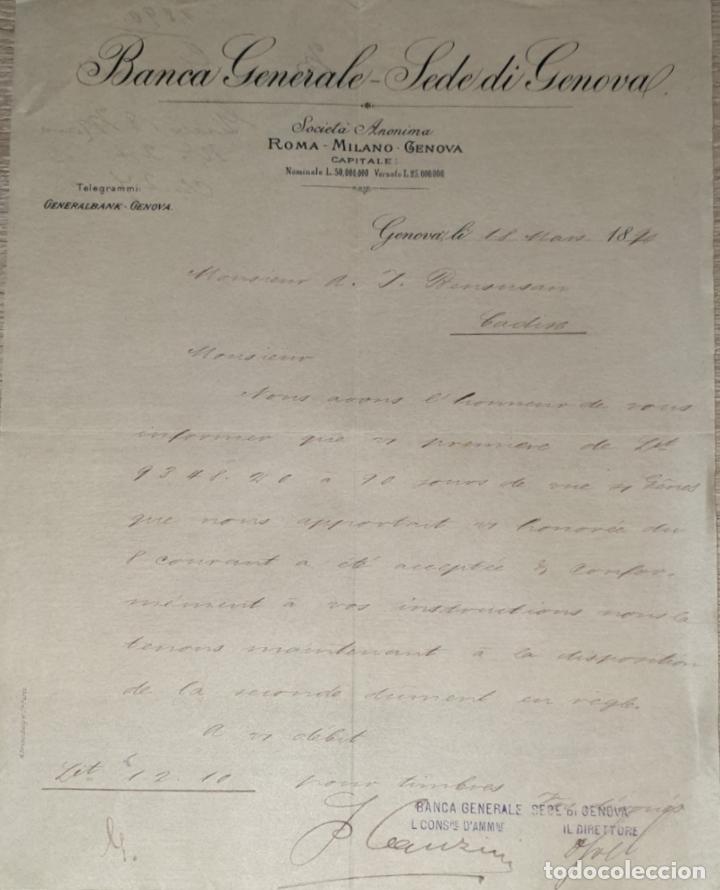 Banca Generale - Sede di Genova.
Società Anonima
ROMA - MILANO - GENOVA
CAPITALE:
Nominale L. 50,000,000 Versato L. 25.000.000
Telegrammi:
GENERALBANK - GENOVA.
Genova, li 18 Mars 1890
Monsieur A. J. Bensusan
Cadix
Monsieur
Nous avons l'honneur de vous
informer que v/ première de Lit
9348.20 à 90 jours de vue s/ Gênes
que nous apportait v/ honorée du
8 courant a été acceptée & confor-
mément à vos instructions nous la
tenons maintenant à la disposition
de la seconde dûment en règle.
A v/ débit
Lit 12.10 pour timbres
BANCA GENERALE SEDE DI GENOVA
L CONSRE D'AMMNE IL DIRETTORE
todocoleccion